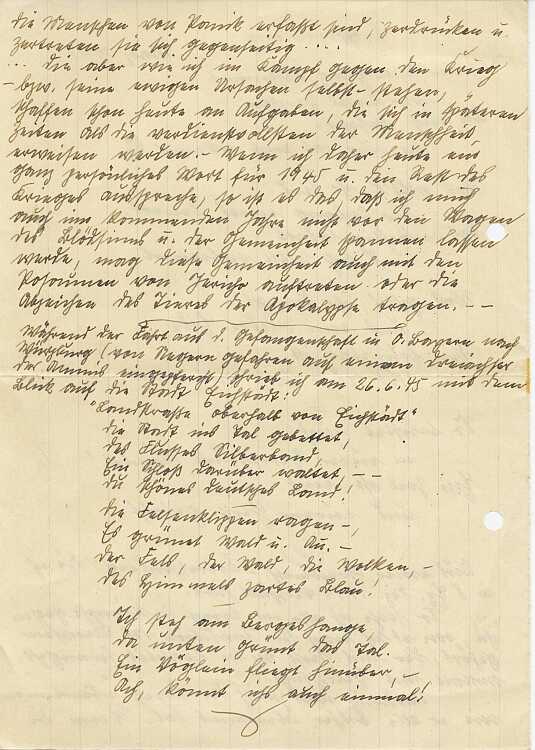 die Menschen von Panik erfaßt sind, zerdrücken u.
zertreten sie sich gegenseitig ....
... die aber wie ich im Kampf gegen den Krieg
- bzw. seine ewigen Ursachen selbst - stehen,
schaffen schon heute an Aufgaben, die sich in späteren
Zeiten als die verdienstvollsten der Menschheit
erweisen werden. - Wenn ich daher heute ein
ganz persönliches Wort für 1945 u. den Rest des
Krieges ausspreche, so ist es das, daß ich mich
auch im kommenden Jahre nicht vor den Wagen
des Blödsinns u. der Gemeinheit spannen lassen
werde, mag diese Gemeinheit auch mit den
Posaunen von Jericho auftreten oder die
Abzeichen des Tieres der Apokalypse tragen. - -
Während der Fahrt aus d. Gefangenschaft in O. Bayern nach
Würzburg (von Negern gefahren auf einem Dreiachser
der Ammis eingepfercht) schrieb ich am 26.6.45 mit dem
Blick auf die Stadt Eichstädt:
"Landstraße oberhalb von Eichstädt"
Die Stadt ins Tal gebettet,
des Flusses Silberband,
Ein Schloß darüber waltet, - -
du schönes deutsches Land!
Die Felsenklippen ragen -,
Es grünet Wald u. Au. -
Der Fels, der Wald, die Wolken, -
des Himmels zartes Blau!
Ich steh am Bergeshange,
da unten grünt das Tal.
Ein Vöglein fliegt hinüber, -
Ach, könnt ichs auch einmal!